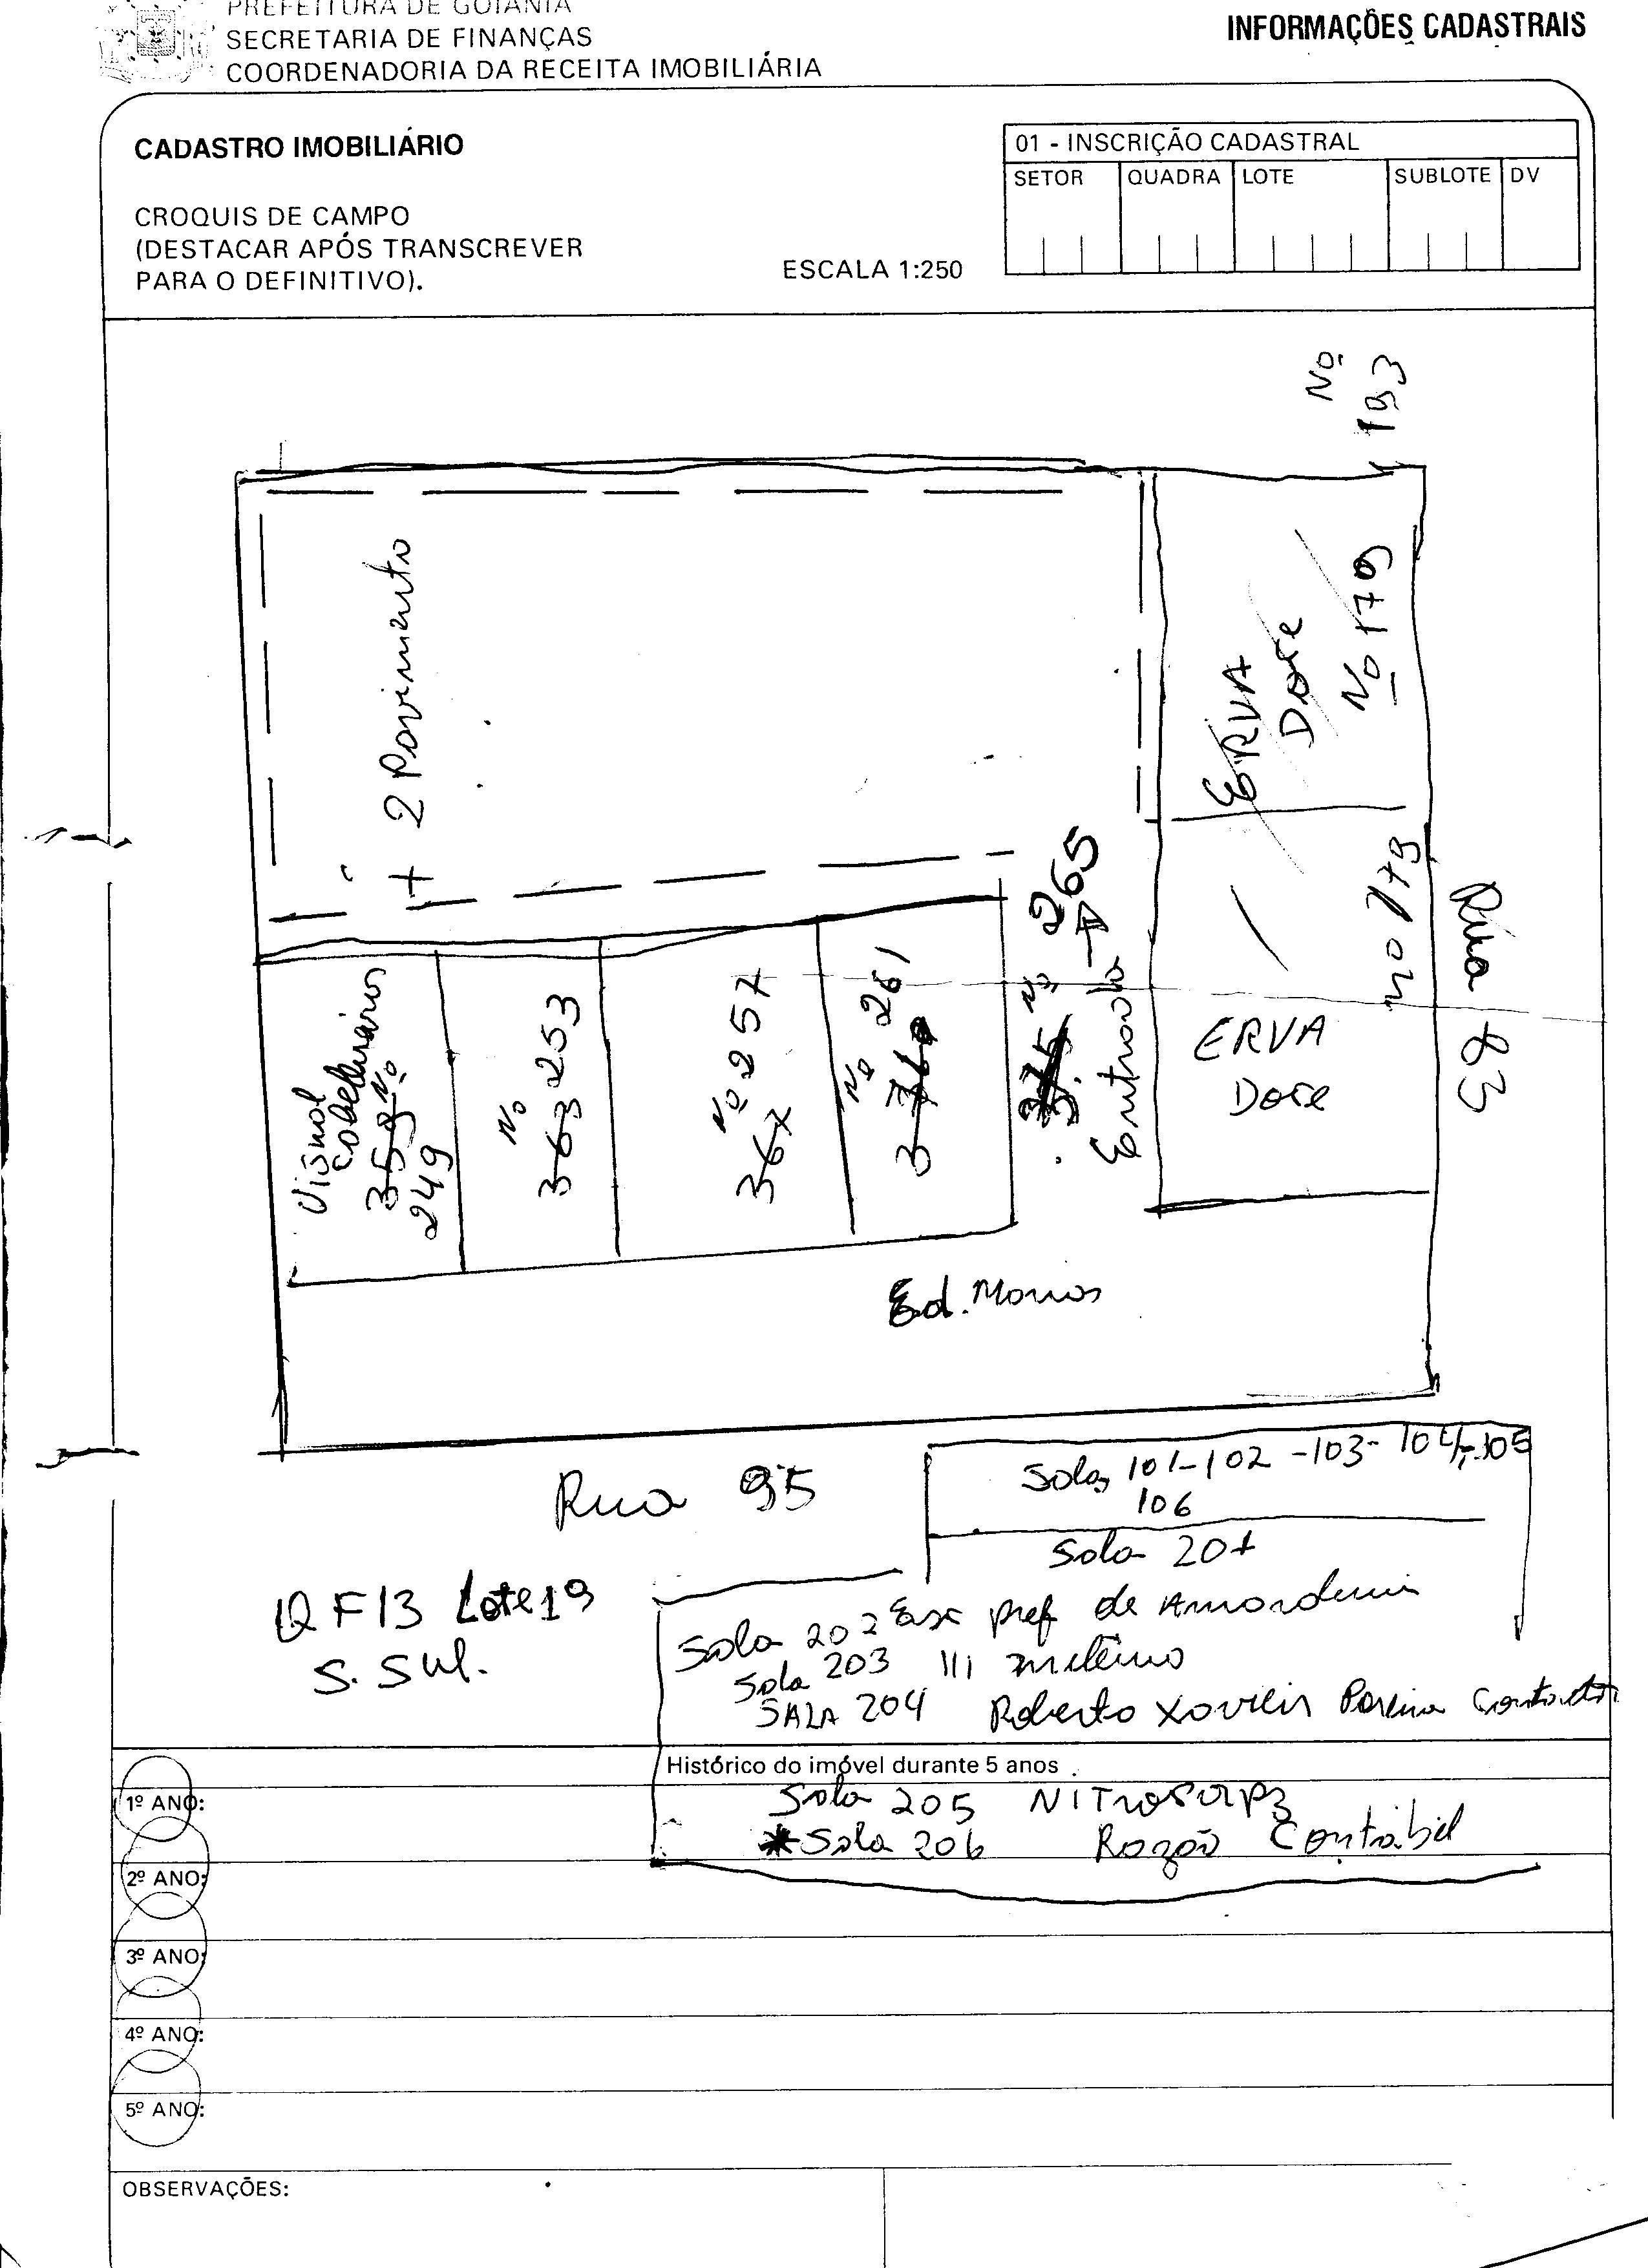 PREFEITURA DE GOIÂNIA
SECRETARIA DE FINANÇAS
COORDENADORIA DA RECEITA IMOBILIÁRIA
INFORMAÇÕES CADASTRAIS
CADASTRO IMOBILIÁRIO
CROQUIS DE CAMPO
(DESTACAR APÓS TRANSCREVER
PARA O DEFINITIVO).
ESCALA 1:250
01 - INSCRIÇÃO CADASTRAL
SETOR QUADRA LOTE SUBLOTE DV
Nº
193
+ 2 Pavimento
ERVA
Doce
Nº 179
Nº 179
Rua 83
ERVA
Doce
Visnal
Nº
359
249
Nº
253
363
Nº 257
367
Nº 261
Nº 265
Entrada
Ed.
Rua 95
Salas 101-102-103-104-105
106
Sala 201
Q F13 Lote 19
S. Sul.
Sala 202 pref de
Sala 203 III milênio
SALA 204 Roberto Xavier Pereira
Histórico do imóvel durante 5 anos
Sala 205
*Sala 206 Razão Contábil
1º ANO:
2º ANO:
3º ANO:
4º ANO:
5º ANO:
OBSERVAÇÕES: